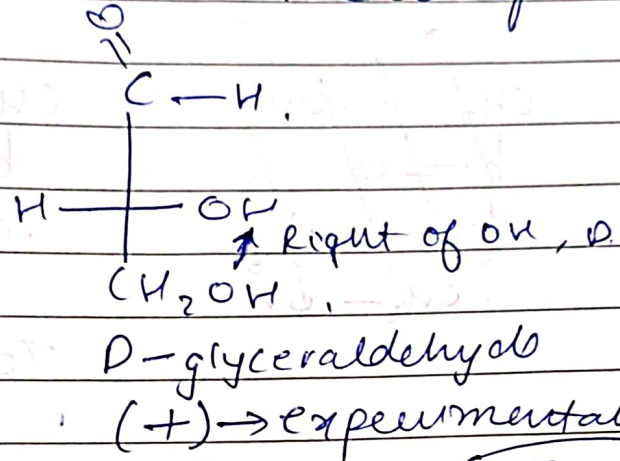 O
C — H .
H — OH
Right of OH, D.
CH₂OH .
D-glyceraldehydo
(+) → experimental